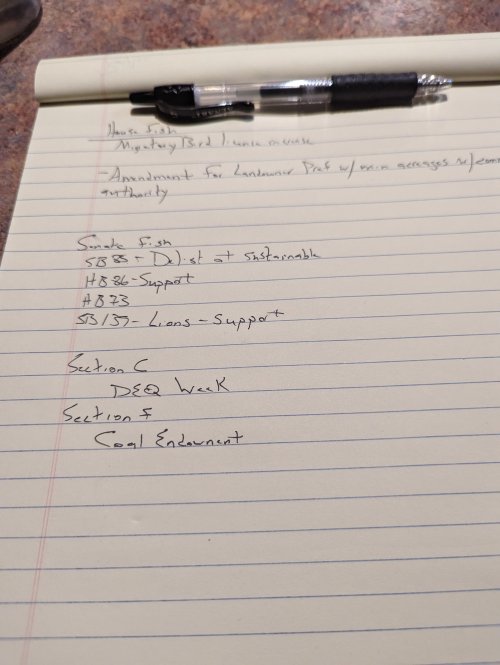 House Fish
Migratory Bird license increase
- Amendment For Landowner Pref w/ min acreages w/ comm
authority
Senate Fish
SB 85 - Delist at sustainable
HB 86 - Support
HB 73
SB 137 - Lions - Support
Section C
DEQ Week
Section F
Coal Endowment